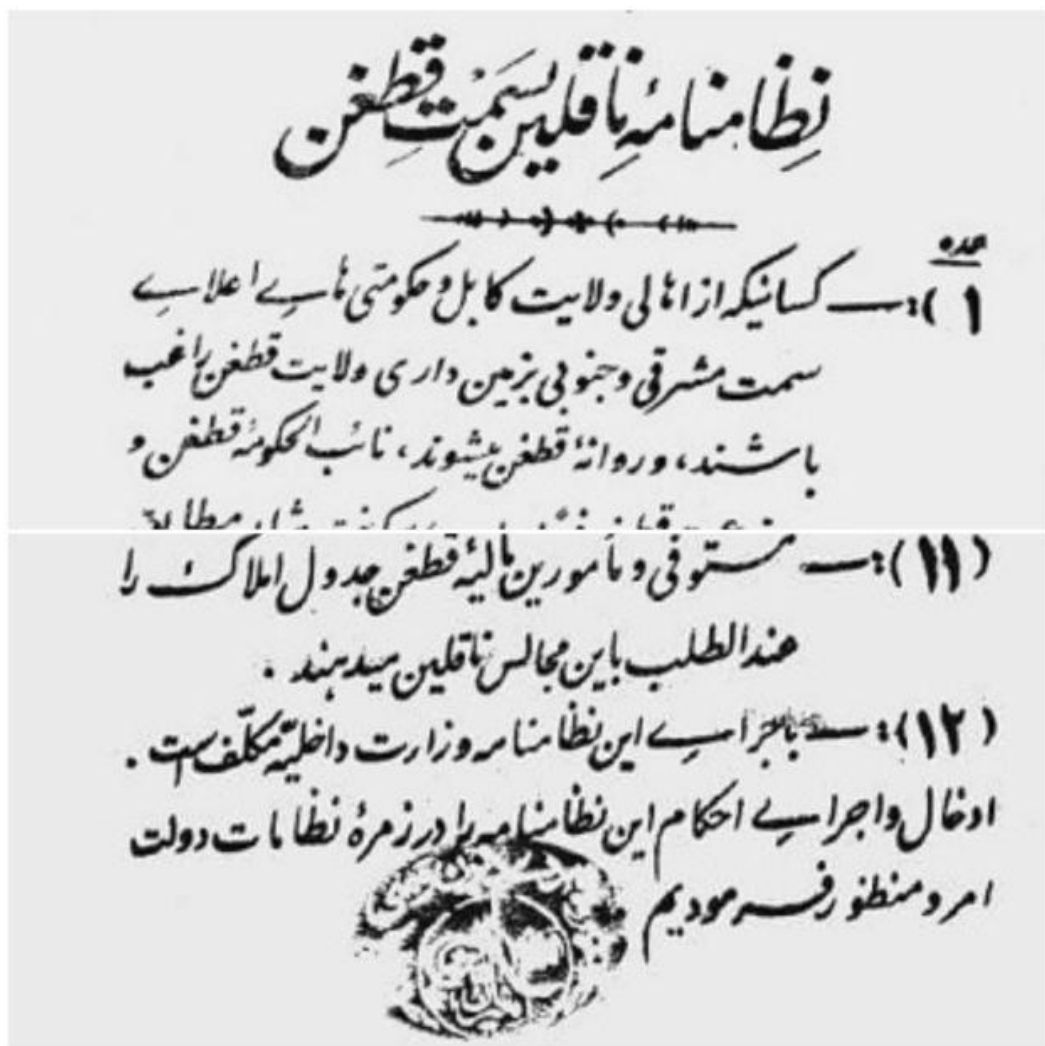 نظامنامهٔ ناقلین بسمت قطغن
ماده
(۱):— کسانیکه از اهالی ولایت کابل و حکومتی هاے اعلاے
سمت مشرقی و جنوبی بزمین داری ولایت قطغن راغب
باشند، و روانهٔ قطغن میشوند، نائب الحکومهٔ قطغن و
(۱۱):— مستوفی و مامورین مالیهٔ قطغن جدول املاک را
عندالطلب باین مجالس ناقلین میدهند .
(۱۲):— باجراے این نظامنامه وزارت داخلیّه مکلّف ست .
ادخال و اجراے احکام این نظامنامه را در زمرهٔ نظامات دولت
امر و منظور فرمودیم